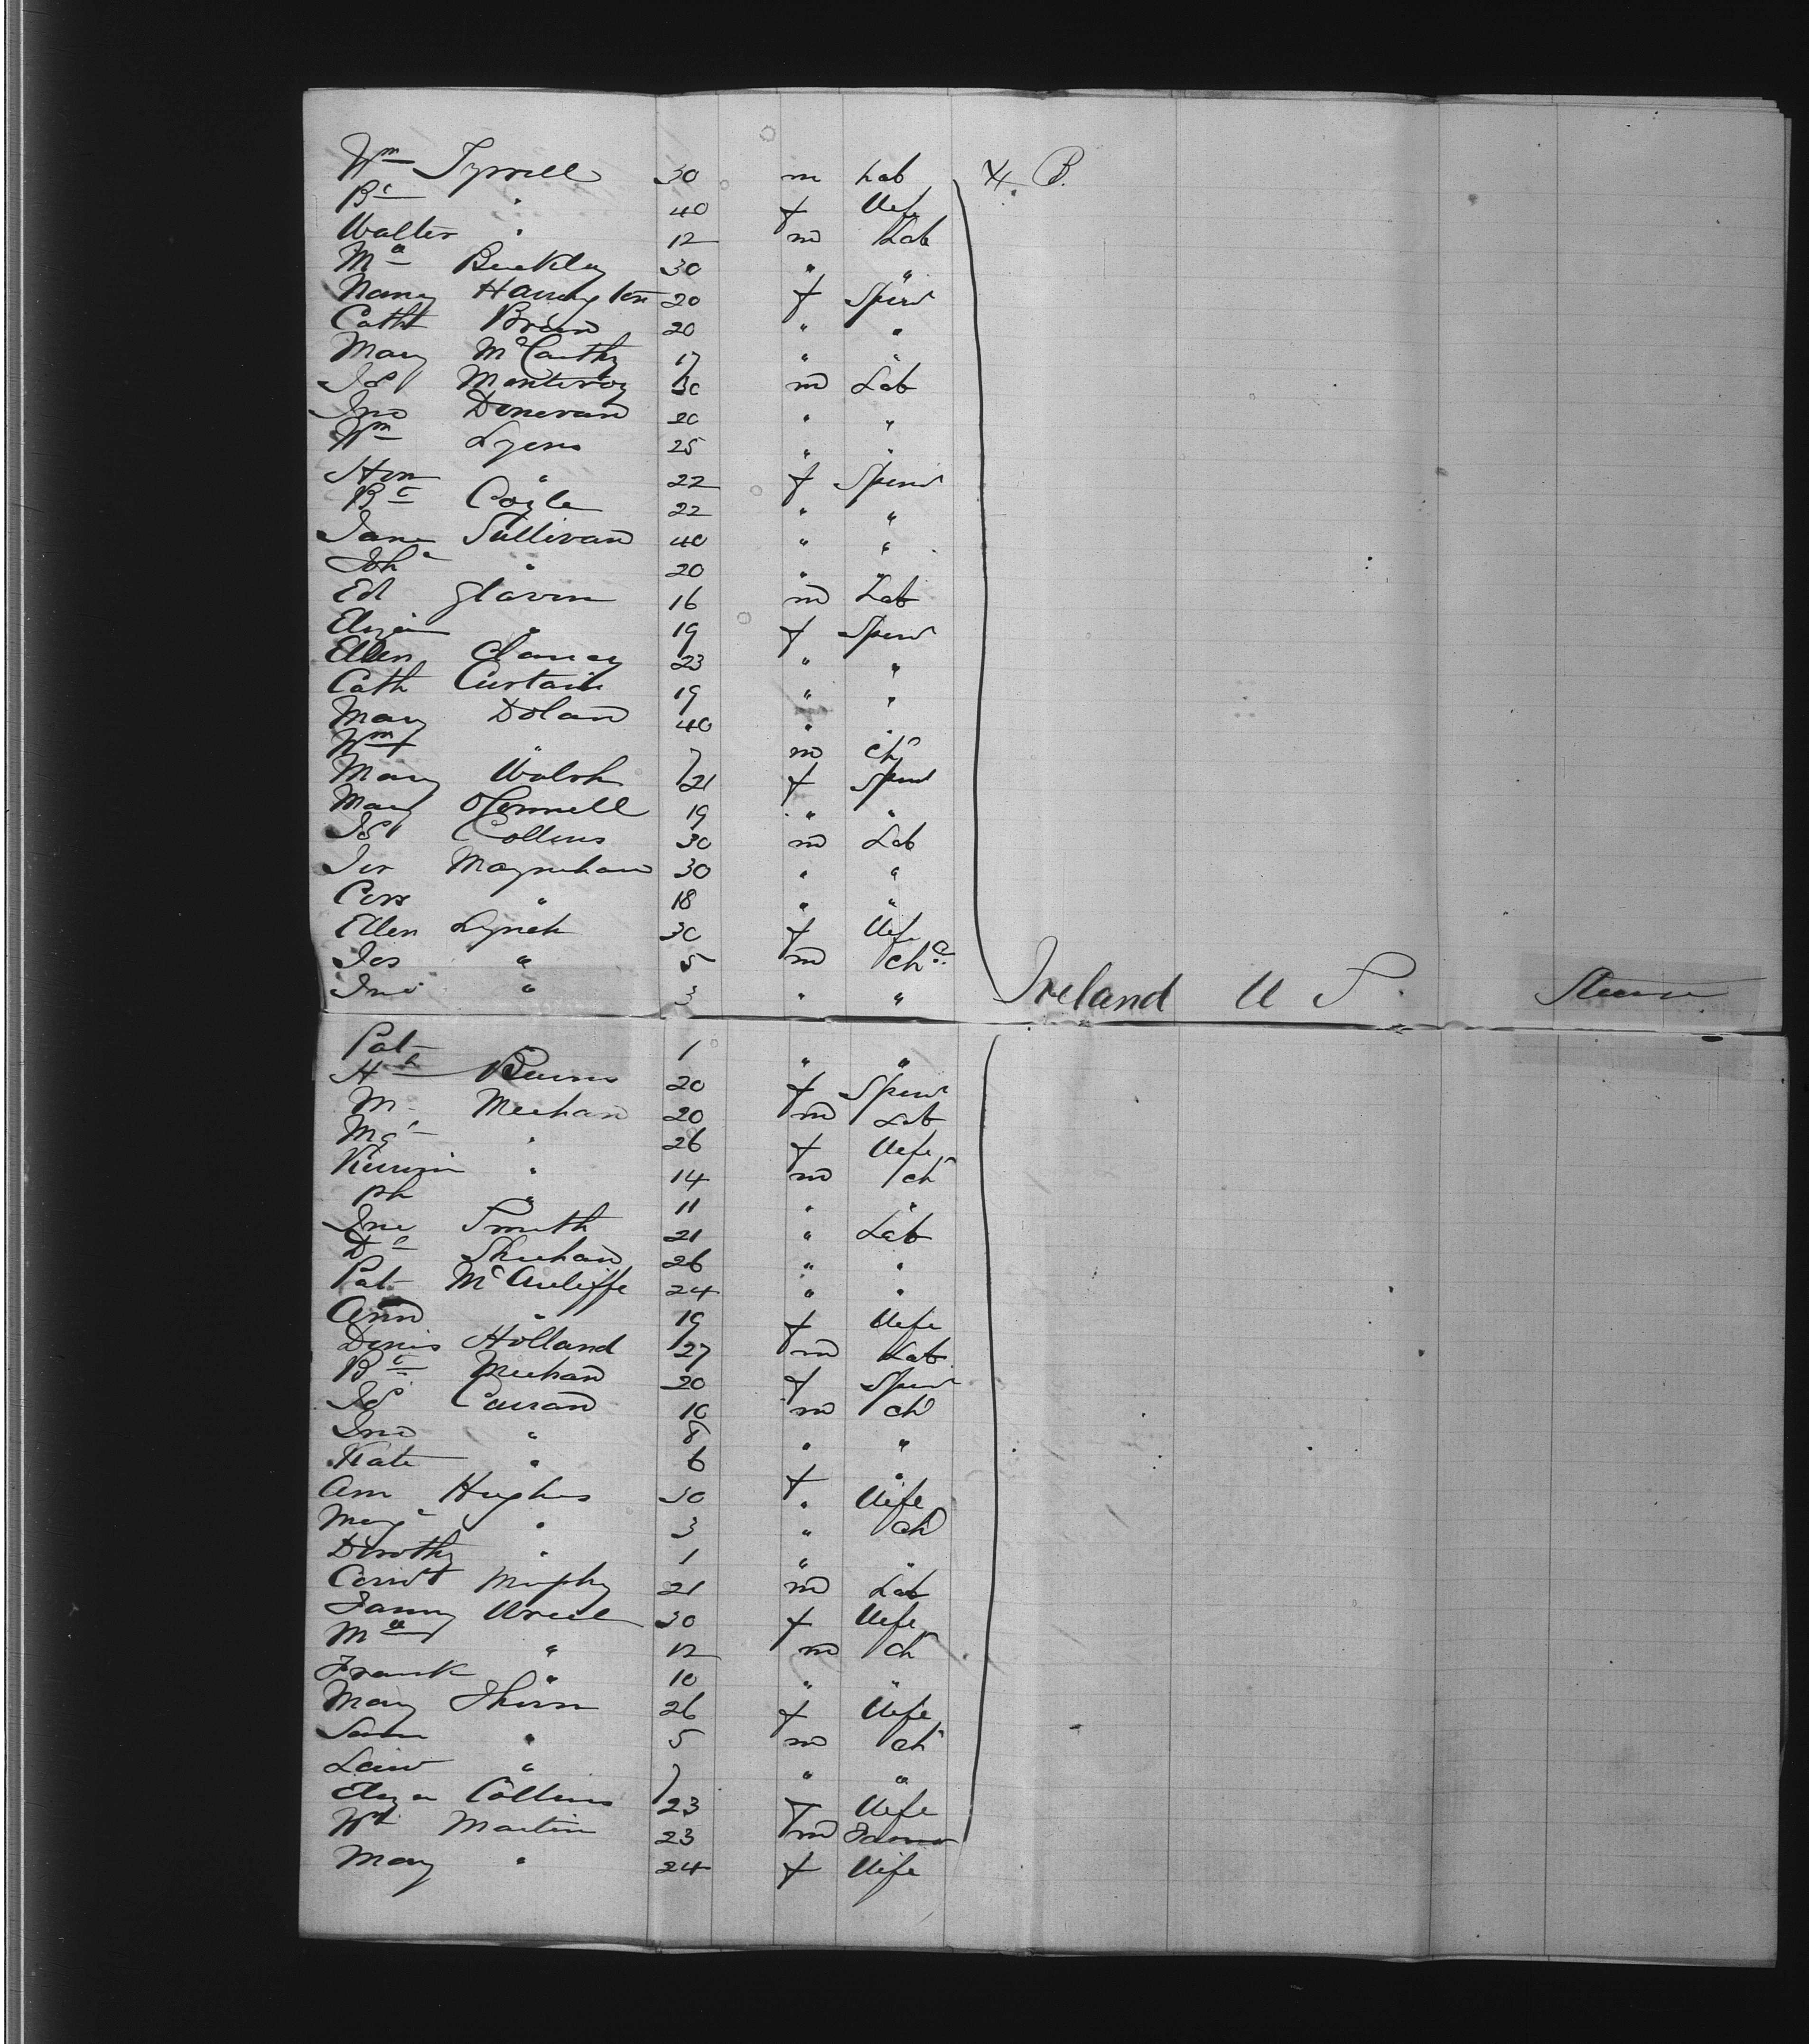 Wm Tyrrell 30 m Lab 4. B.
Bt " 40 f Wife
Walter " 12 m Lab
Ma Buckley 30 " "
Nancy Harrington 20 f Spins
Cath Brien 20 " "
Mary McCarthy 17 " "
Jas 30 m Lab
Jno Donovan 20 " "
Wm Lyons 25 " "
Hon " 22 f Spins
Bt Coyle 22 " "
Jane Sullivan 40 " "
Joha " 20 " "
Ed Glavin 16 m Lab
Eliza " 19 f Spins
Ellen Clancy 23 " "
Cath Curtain 19 " "
Mary Dolan 40 " "
Wm " 7 m Ch
Mary Walsh 21 f Spins
Mary OConnell 19 " "
Jas Collins 30 m Lab
Jer Moynehan 30 " "
Cors " 18 " "
Ellen Lynch 30 f Wife
Jas " 5 m Ch
Jno " 3 " " Ireland U S.
Pat 1 " "
Burns 20 f Spins
M Meehan 20 m Lab
Mgt " 26 f Wife
" 14 m Ch
Ph " 11 " "
Jno Smith 21 " Lab
Dl Sheehan 26 " "
Pat McAuliffe 24 " "
Ann " 19 f Wife
Denis Holland 27 m Lab
Bt Meehan 20 f Spins
Jas Curran 10 m Ch
Jno " 8 " "
Kate " 6 f "
Ann Hughes 30 " Wife
Margt " 3 " Ch
Dorothy " 1 " "
Murphy 21 m Lab
Fanny 30 f Wife
Ma " 12 m Ch
Frank " 10 " "
Mary 26 f Wife
Sam " 5 m Ch
" 7 " "
Eliza Collins 23 f Wife
Wm Martin 23 m Farmer
Mary " 24 f Wife